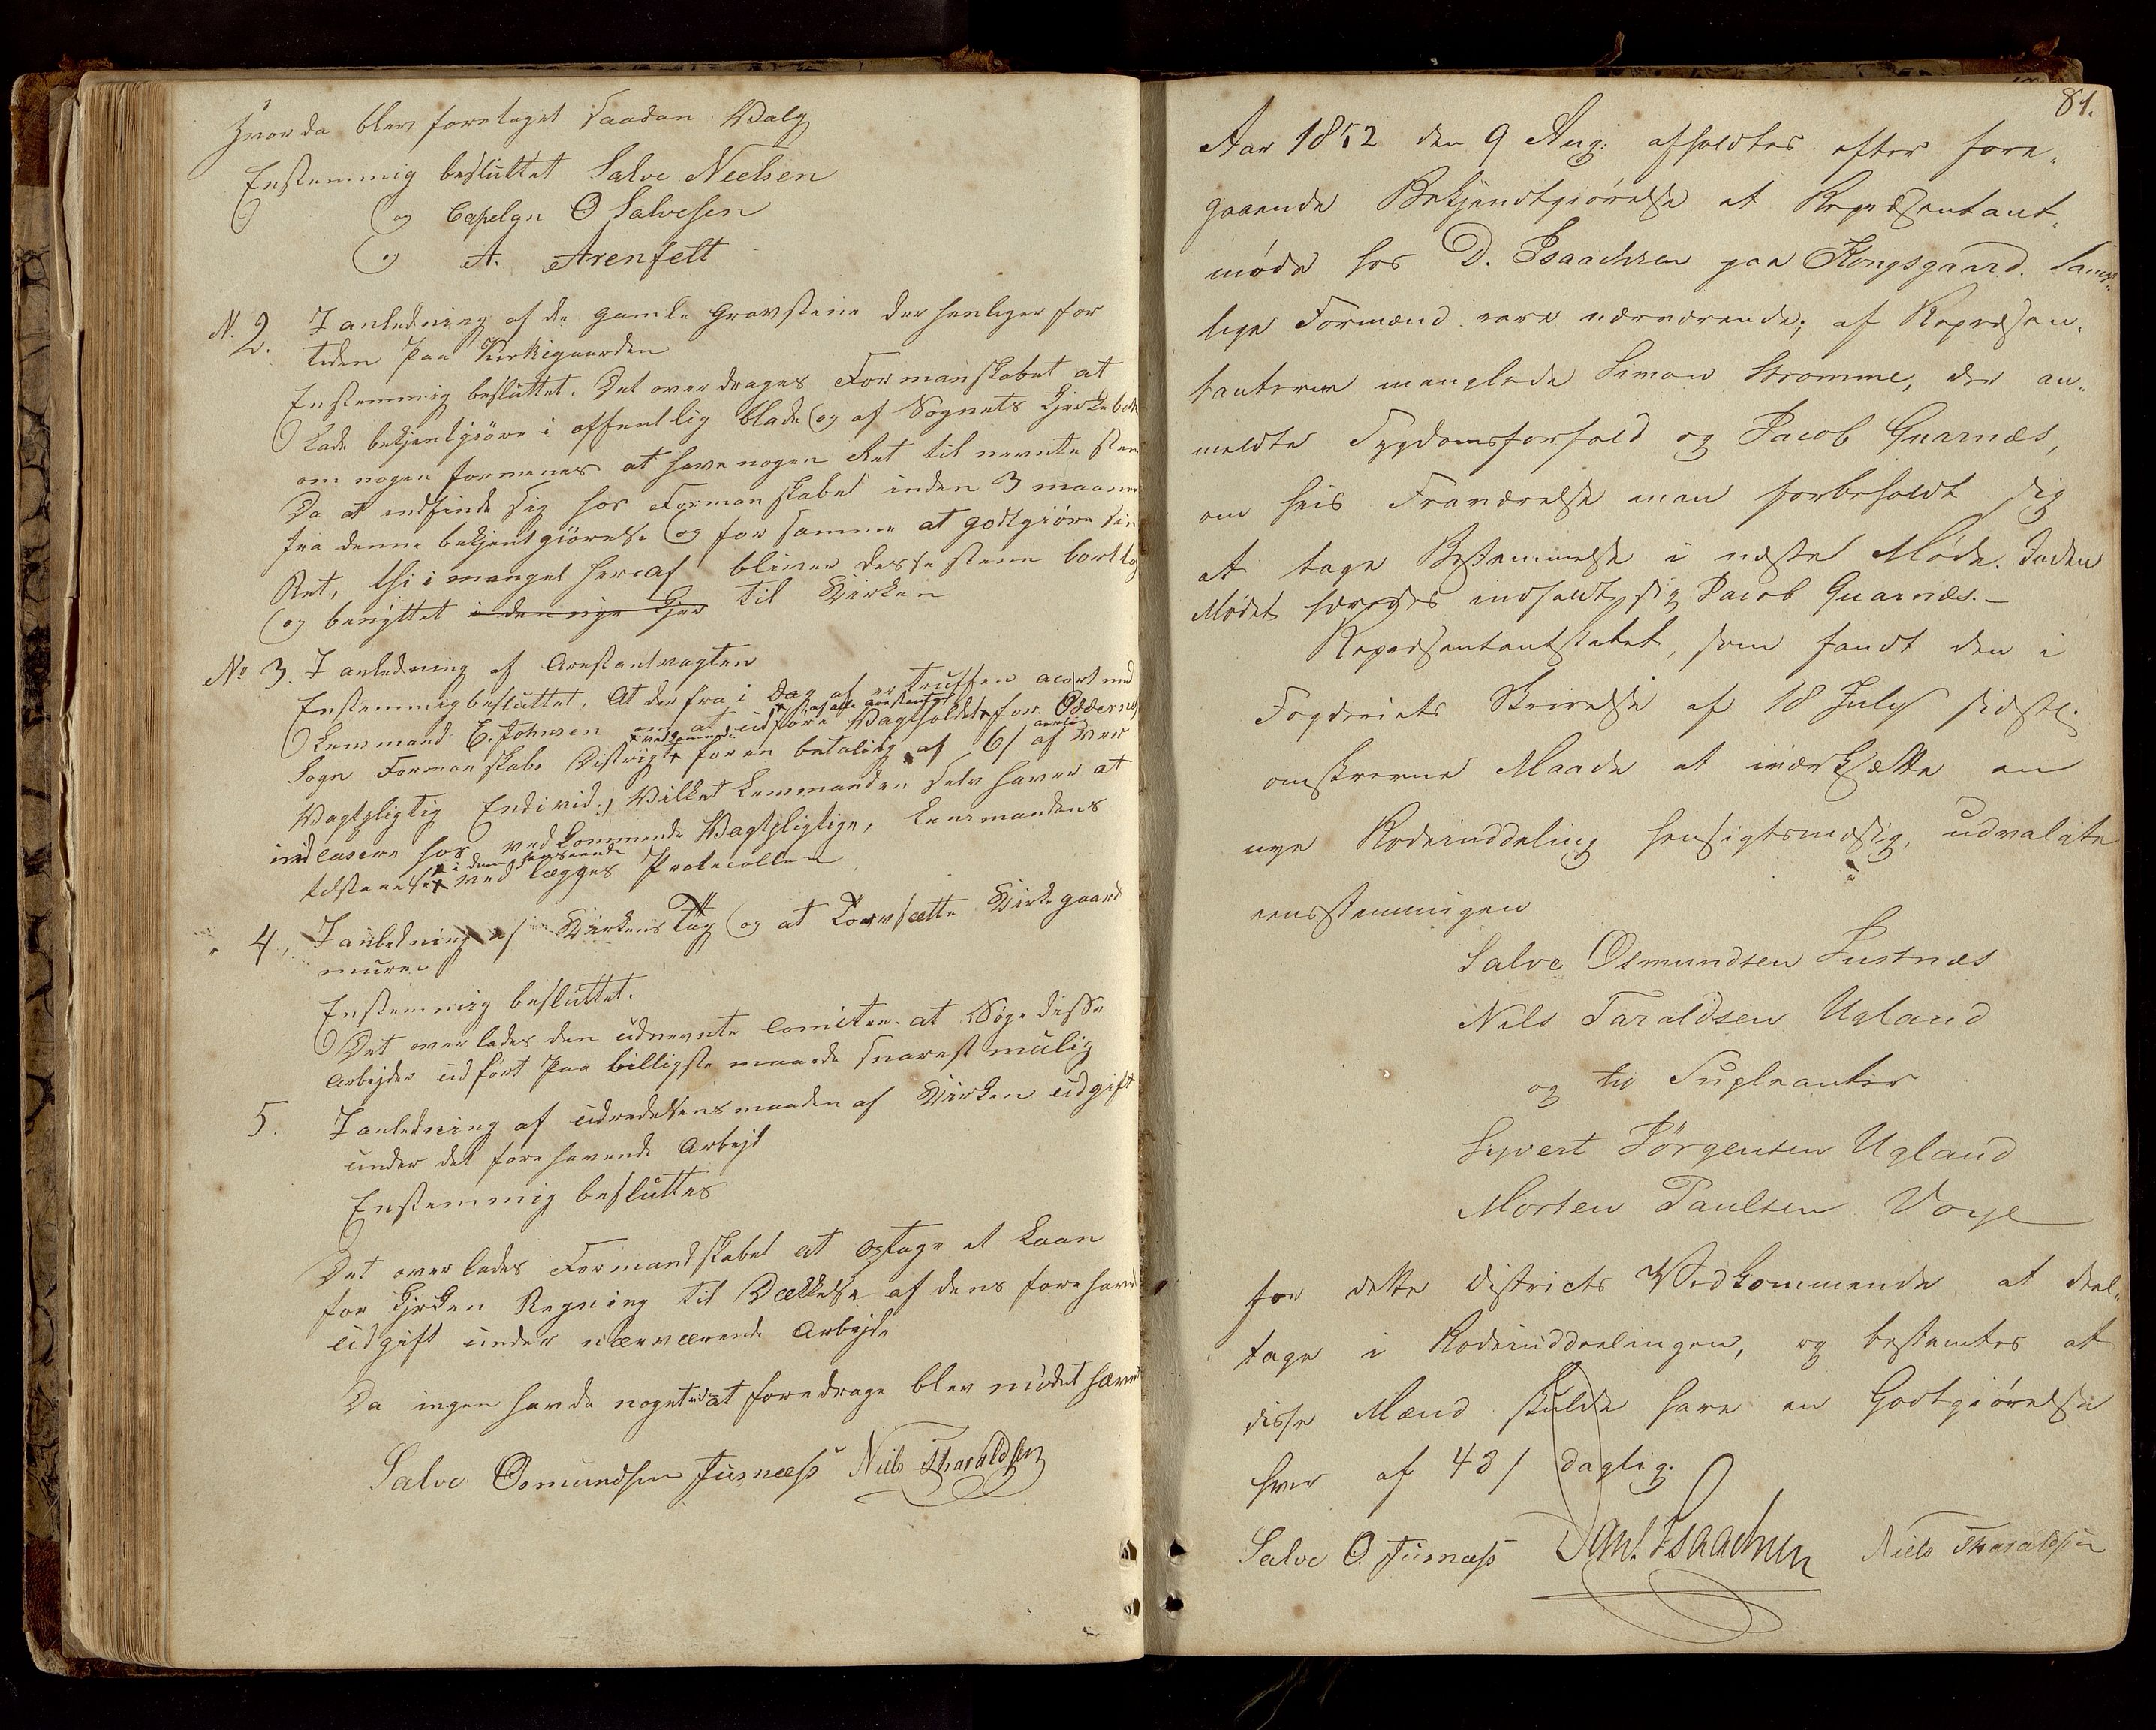 Hvorda blev foretaget saadan Valg
Enstemmig besluttet Salve Neelsen
og Capelan O Salvesen
og A. Arenfelt
N. 2. I anledning af de gamle gravstene der henliger for
tiden paa Kirkegaarden
Enstemmig besluttet. Det overdrages Formanskabet at
Lade bekjentgiöre i offentlig blade og af Sognets Kjerkebak
om nogen formenes at have nogen Ret til nevnte sten
Da at indfinde sig hos Formanskabet inden 3 maaner
fra denne bekjentgiörelse og for samme at godtgiöre sin
Ret, thi i mangel heraf bliver desse stene borttag
og benyttet i den nye Kjer til Kirken
No 3. I anledning af Arestantvagten
Enstemmigbesluttet. At der fra i Dag af er truffen acort med
Lensmand E. Johnsen om at udföre Vagtholdet for Oddernes
Sogn Formanskabs Distrigt for en betaling af 6/ af vær
Vagtpligtig Endivid, Vilket Lensmanden selv haver at
indcasere hos vedkommende Vagtpligtige, Lensmandens
tilstaaelse i dem henseende vedlægges Protocollen
4. I anledning af Kirkens Tag og at istandsætte Kirkegaard
muren
Enstemmig besluttet.
Det overlades den udnevnte Comitee at Söge disse
Arbejder udfört paa billigste maade snarest mulig
5. I anledning af udredelsensmaaden af Kirken udgift
under det forehavende Arbejd
Enstemmig besluttes
Det overlades Formandskabet at optage et Laan
for Kjrken Regning til Dækkelse af dens forehavend
udgift under nærværende Arbejde
Da ingen havde noget vid at foredrage blev mödet hævet
Salve Osmundsen Jusnæss Niels Tharaldsen
81.
Aar 1852 den 9 Aug: afholdtes efter fore„
gaaende Bekjendtgiörelse et Repræsentant„
møde hos D. Isaachsen paa Kongsgaard. Samt„
lige Formænd vare nærværende; af Repræsen„
tanterne manglede Simon Stromme, der an„
meldte Sygdomsforfald og Jacob Qvarnæs,
om hvis Fraværelse man forbeholdt sig
at tage Bestemmelse i næste Møde. Inden
Mødet hævedes indfandt sig Jacob Qvarnæs.–
Repræsentantskabet, som fandt den i
Fogderiets Skrivelse af 18 July sidstl.
omskrevne Maade at iværksætte en
nye Rodeinddeling hensigtsmæsig, udvalgte
eensstemmigen
Salve Osmundsen Justnæs
Nils Taraldsen Ugland
og til Supleanter
Syvert Jörgensen Ugland
Morten Paulsen Voye
for dette Districts Vedkommende at deel„
tage i Rodeinddeelingen, og bestemtes at
disse Mænd skulde have en Godtgiörelse
hver af 48/ daglig.
Salve O. Jusnæss Danl. Isaachsen Niels Tharaldsen